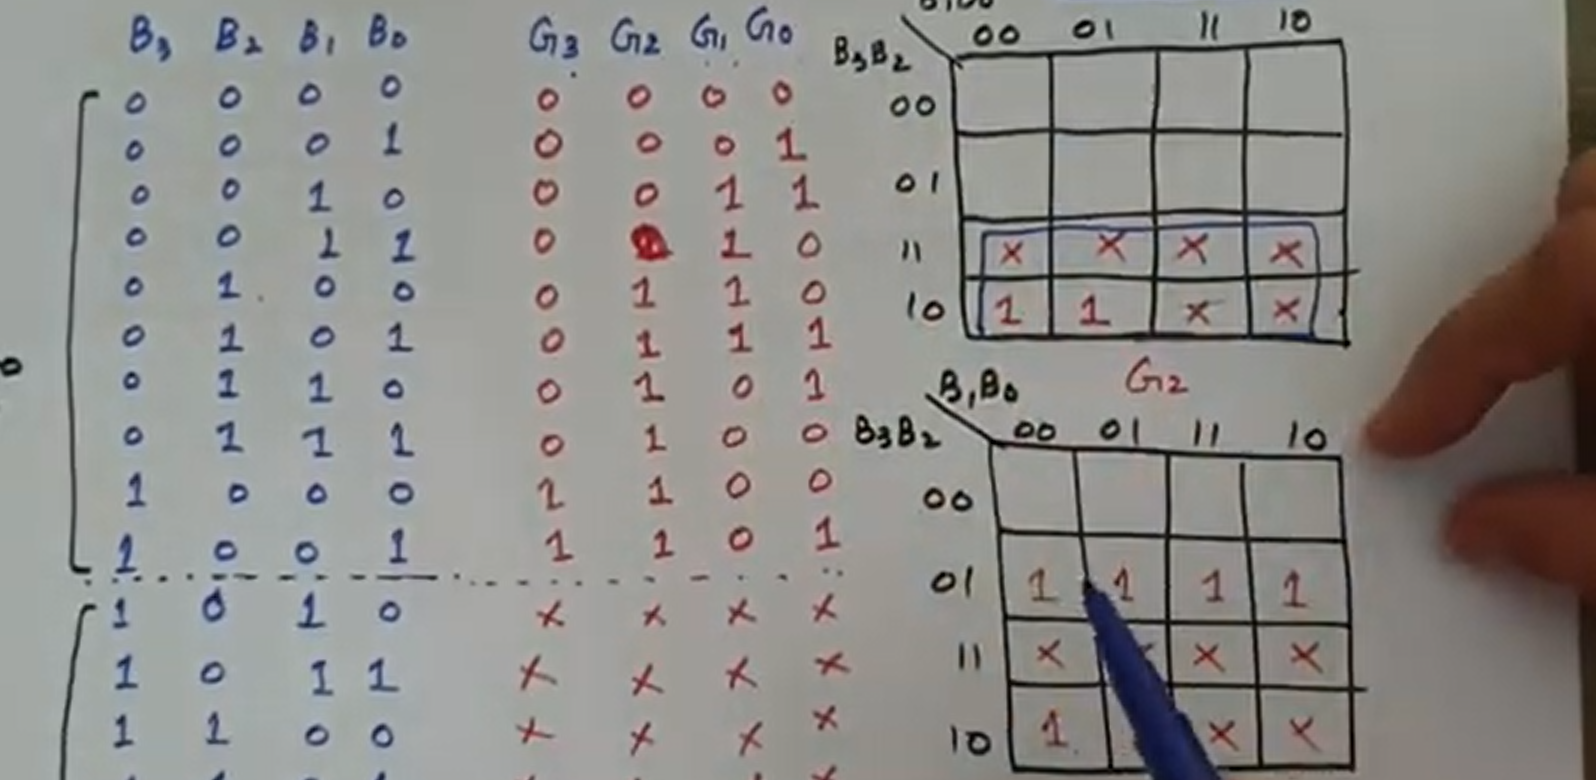 B3 B2 B1 B0 G3 G2 G1 G0
0 0 0 0 0 0 0 0
0 0 0 1 0 0 0 1
0 0 1 0 0 0 1 1
0 0 1 1 0 1 0
0 1 0 0 0 1 1 0
0 1 0 1 0 1 1 1
0 1 1 0 0 1 0 1
0 1 1 1 0 1 0 0
1 0 0 0 1 1 0 0
1 0 0 1 1 1 0 1
1 0 1 0 x x x x
1 0 1 1 x x x x
1 1 0 0 x x x x
B3B2 00 01 11 10
00
01
11 x x x x
10 1 1 x x
G2
B1B0
B3B2 00 01 11 10
00
01 1 1 1 1
11 x x x
10 1 x x